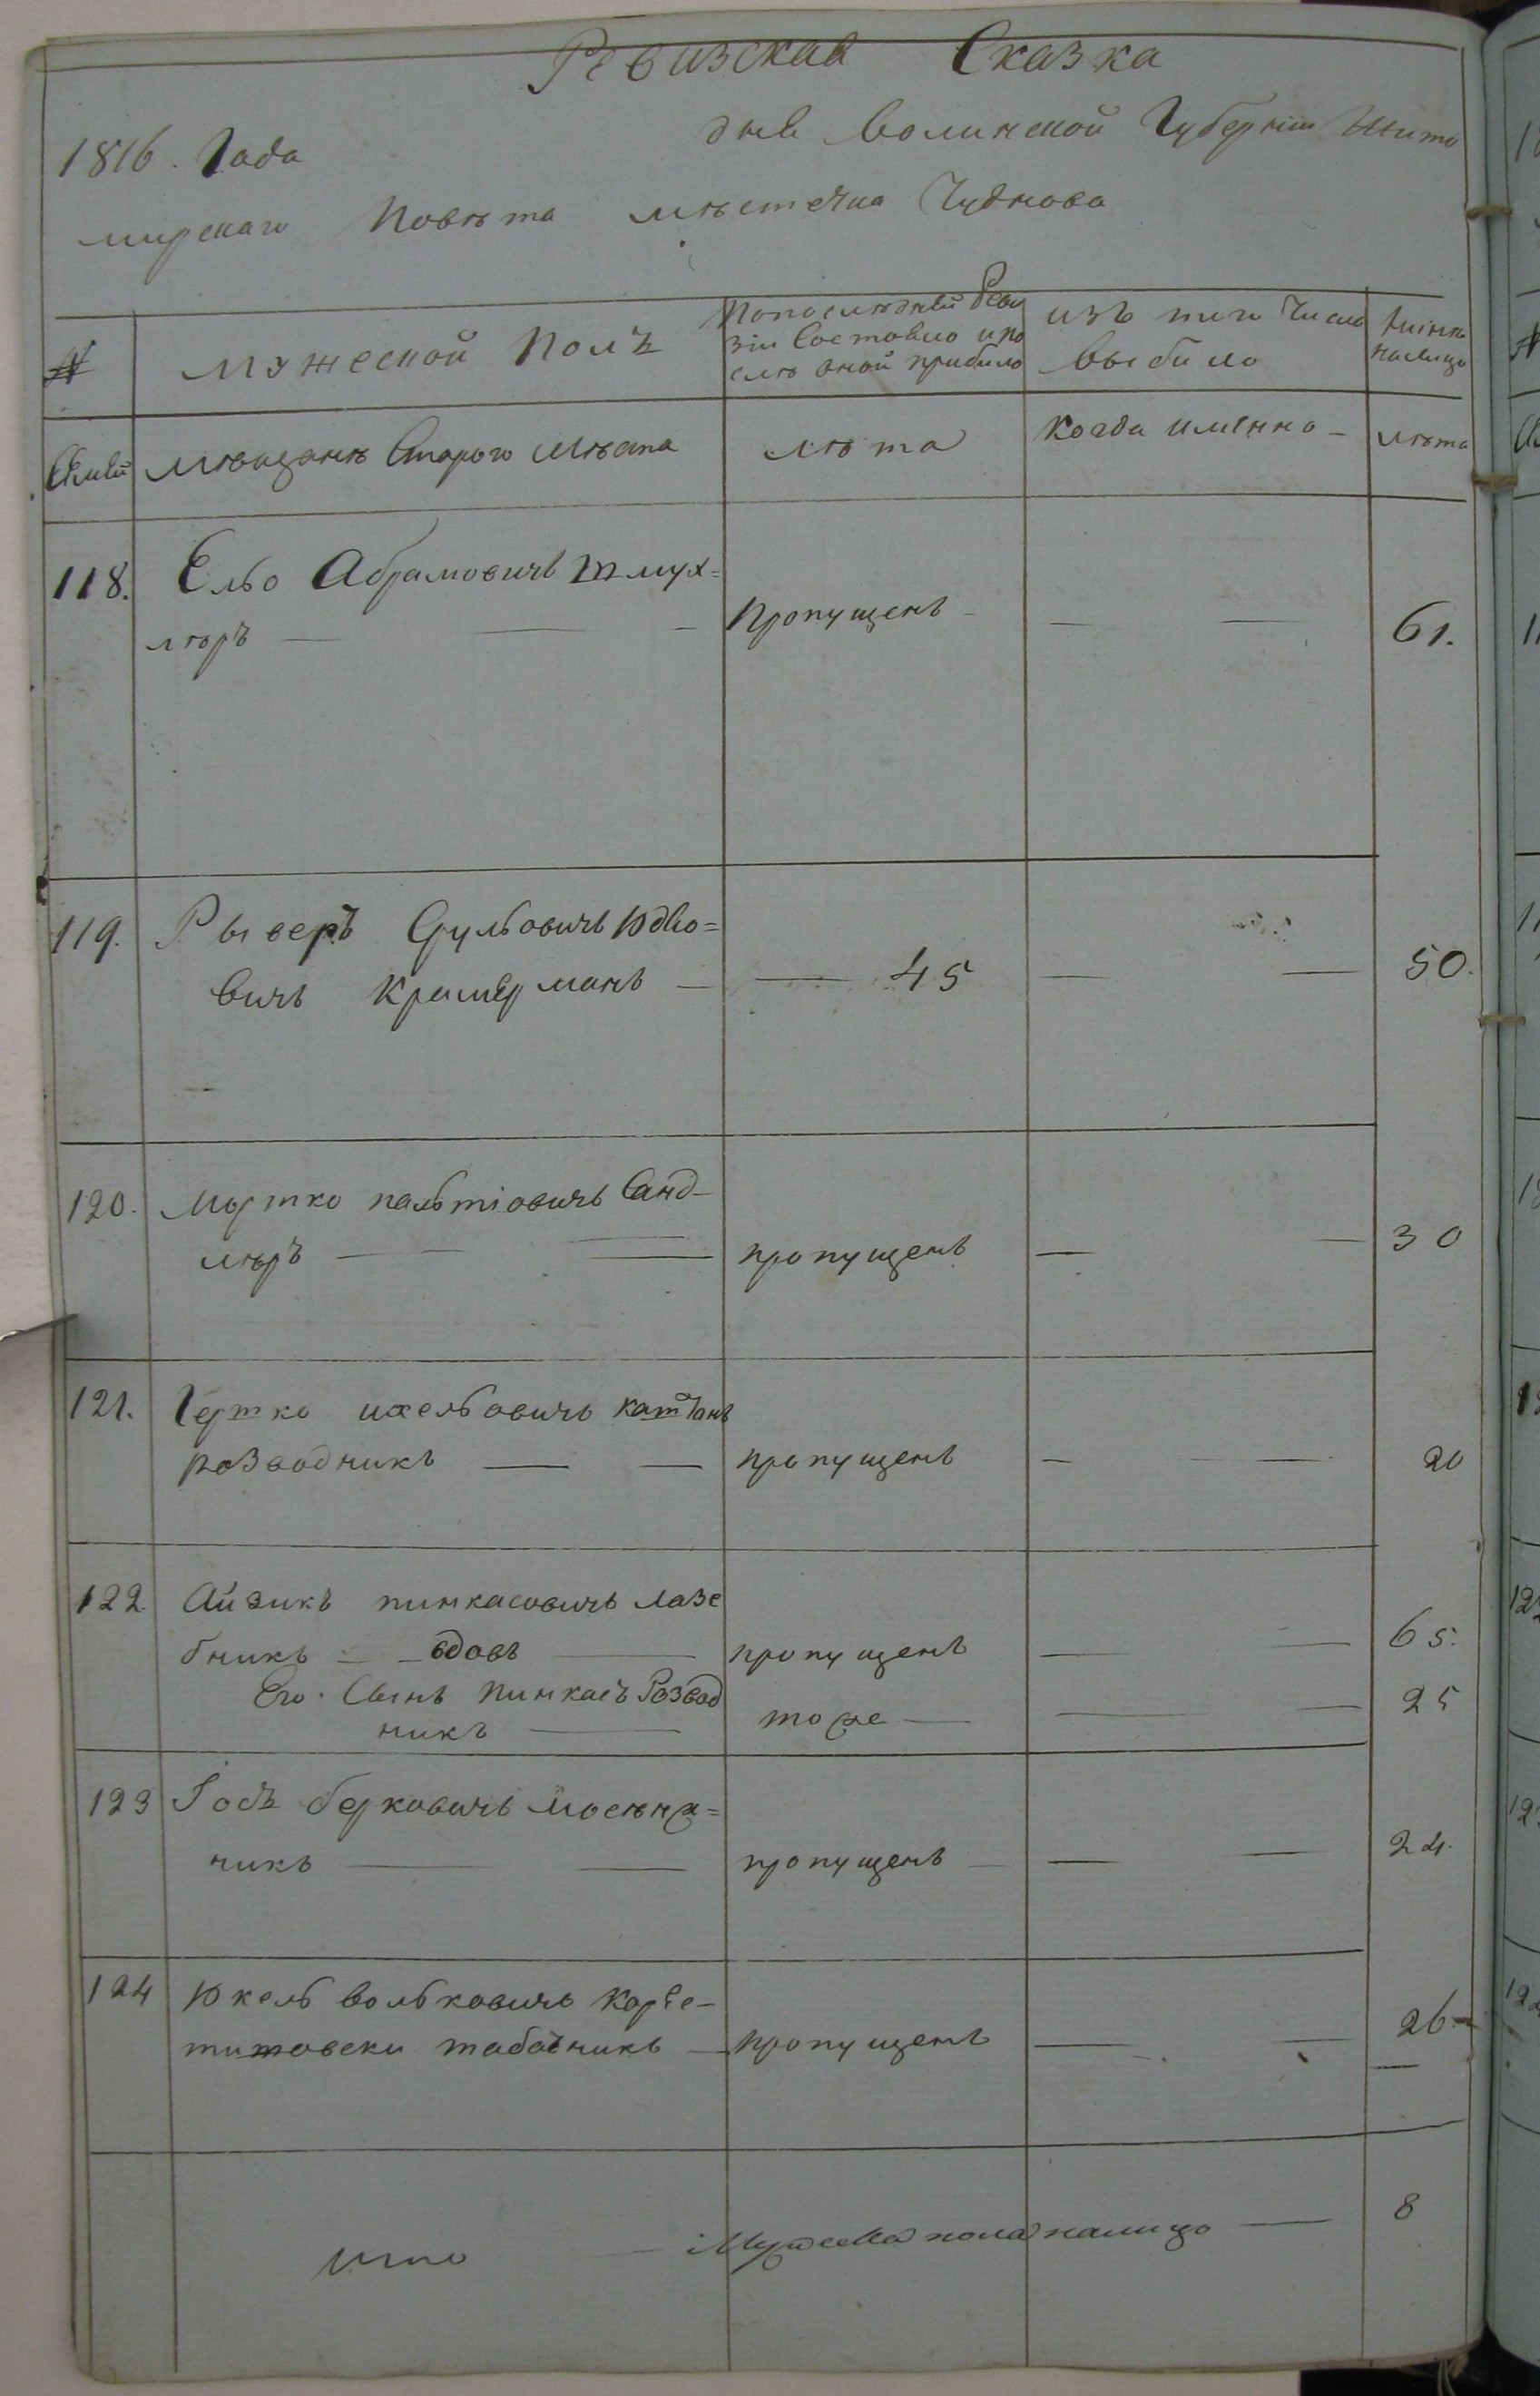 Ревизская Сказка
1816. Года дня Волинской Губернии Жито
мирскаго Повѣта мѣстечка Чуднова
№ мужеской Полъ Попослѣдней Реви
зіи Состояло и по
слѣ оной прибило изъ того Числа
выбило Ныінѣ
налицо
Семьи мѣщанѣ Старого Мѣста лѣта Когда именно - лѣта
118. Ельо Абрамовичь
лѣръ Пропущенъ 61.
119. Срульовичь Юдко=
вичь Крамерманъ 45 50.
120. Мортко пальтіовичь Санд-
лѣръ пропущенъ 30
121. Гершко ихельовичь
розводникъ пропущенъ 20
122. Айзикъ пинкасовичь лазе
бникъ вдовъ пропущенъ 65.
Его Сынъ Пинкасъ Розвод 25
никъ тоже
123 Госъ берковичь
никъ пропущенъ 24.
124 Юкель вольковичь
табачникъ пропущенъ 26
Итто Мужеска пола налицо 8